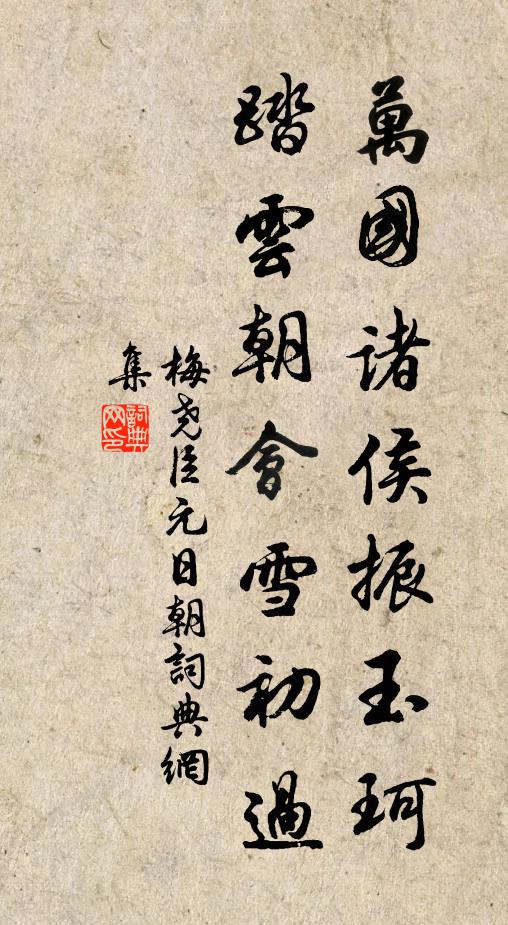 萬國諸侯振玉珂
踏雲朝會雪初過
梅堯臣元日朝詞典網
集
詞典
网印